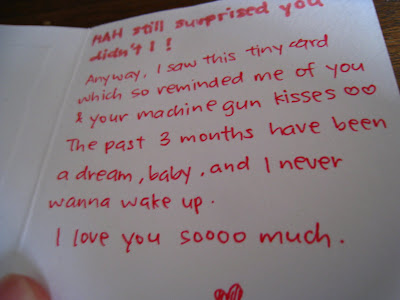 HAH still surprised you
didn't I!
Anyway, I saw this tiny card
which so reminded me of you
& your machine gun kisses ♡♡
The past 3 months have been
a dream, baby, and I never
wanna wake up.
I love you soooo much.